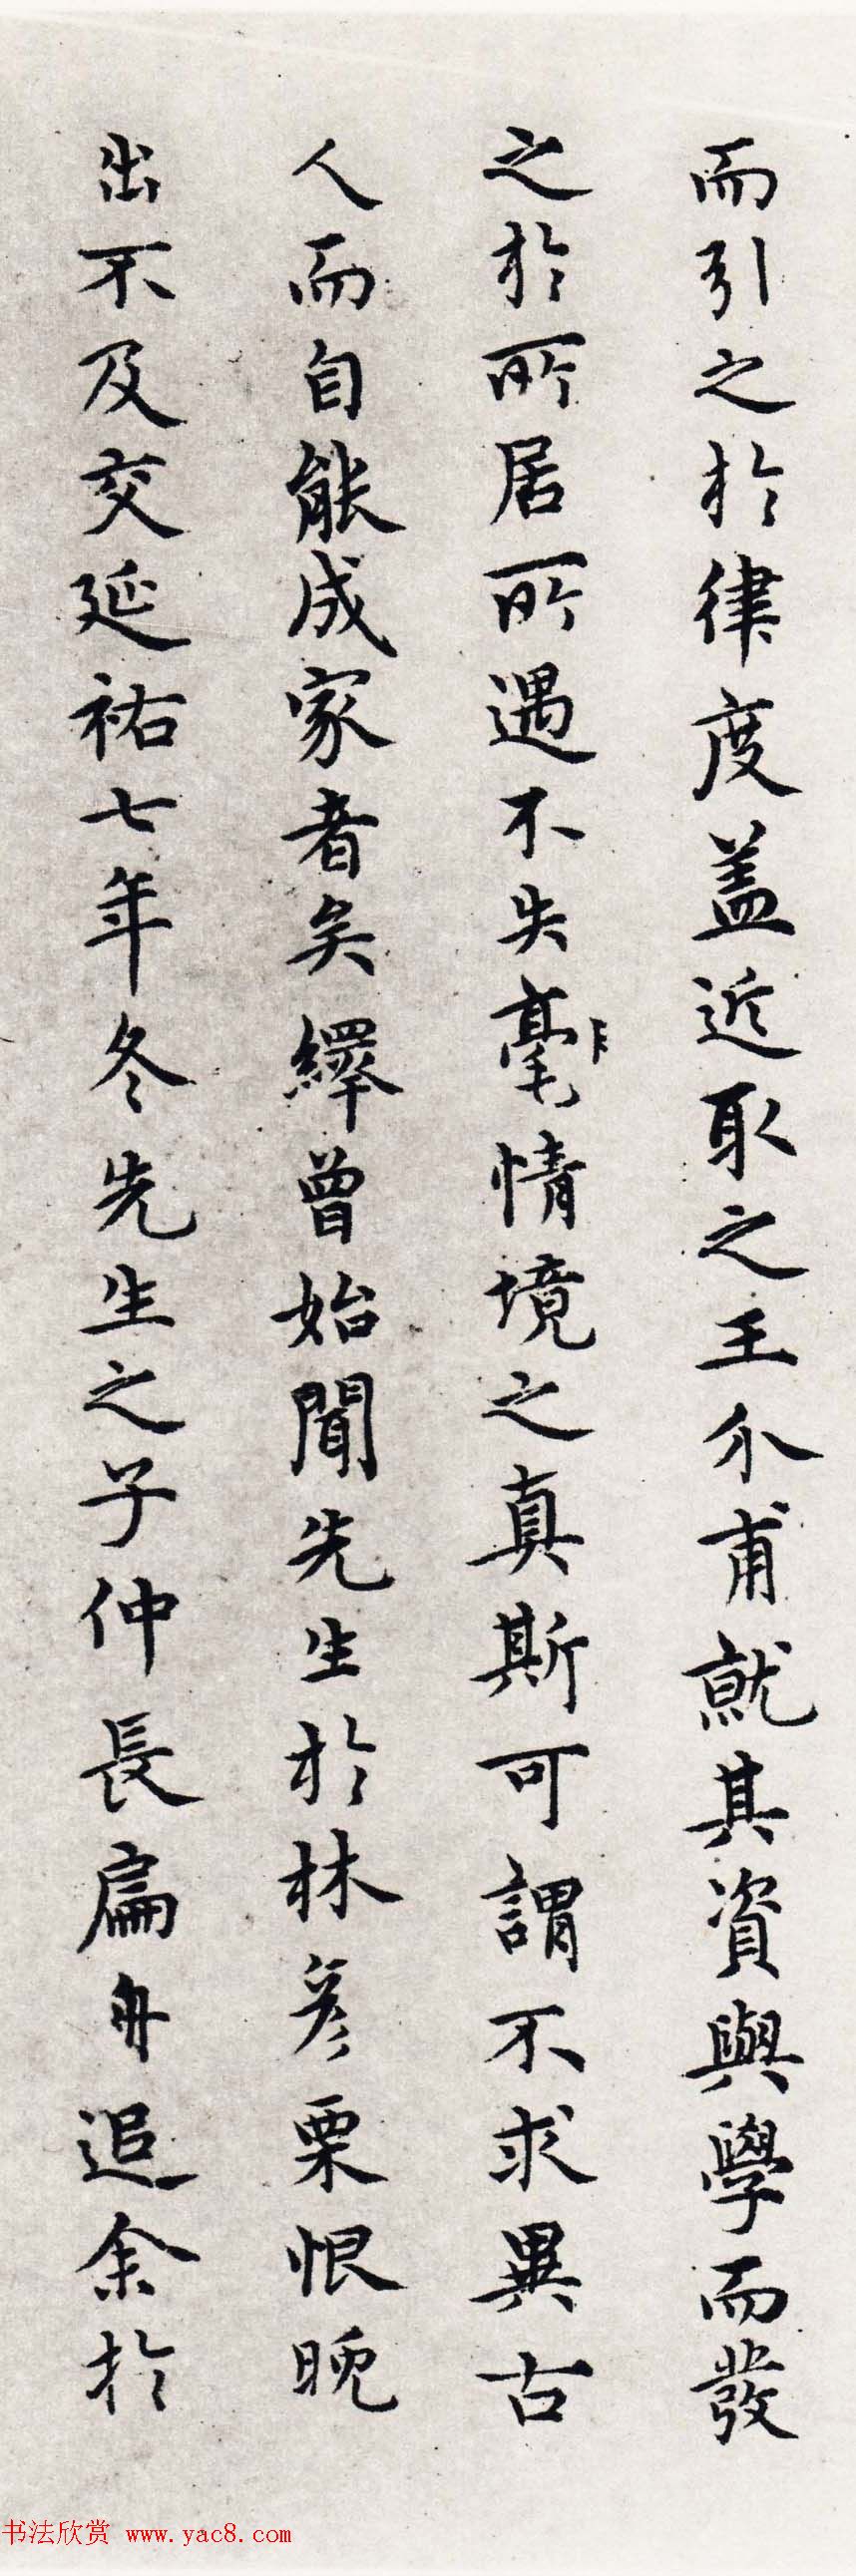 而引之於律度盖近取之王介甫就其資與學而發
之於所居所遇不失毫情境之真斯可謂不求異古
人而自能成家者矣繹曾始聞先生於林彥栗恨晚
出不及交延祐七年冬先生之子仲長扁舟追余於
书法欣赏 www.yac8.com